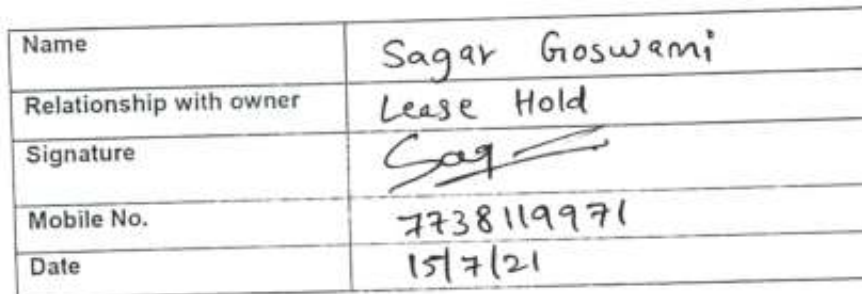 Name Sagar Goswami
Relationship with owner Lease Hold
Signature Sag
Mobile No. 7738119971
Date 15/7/21